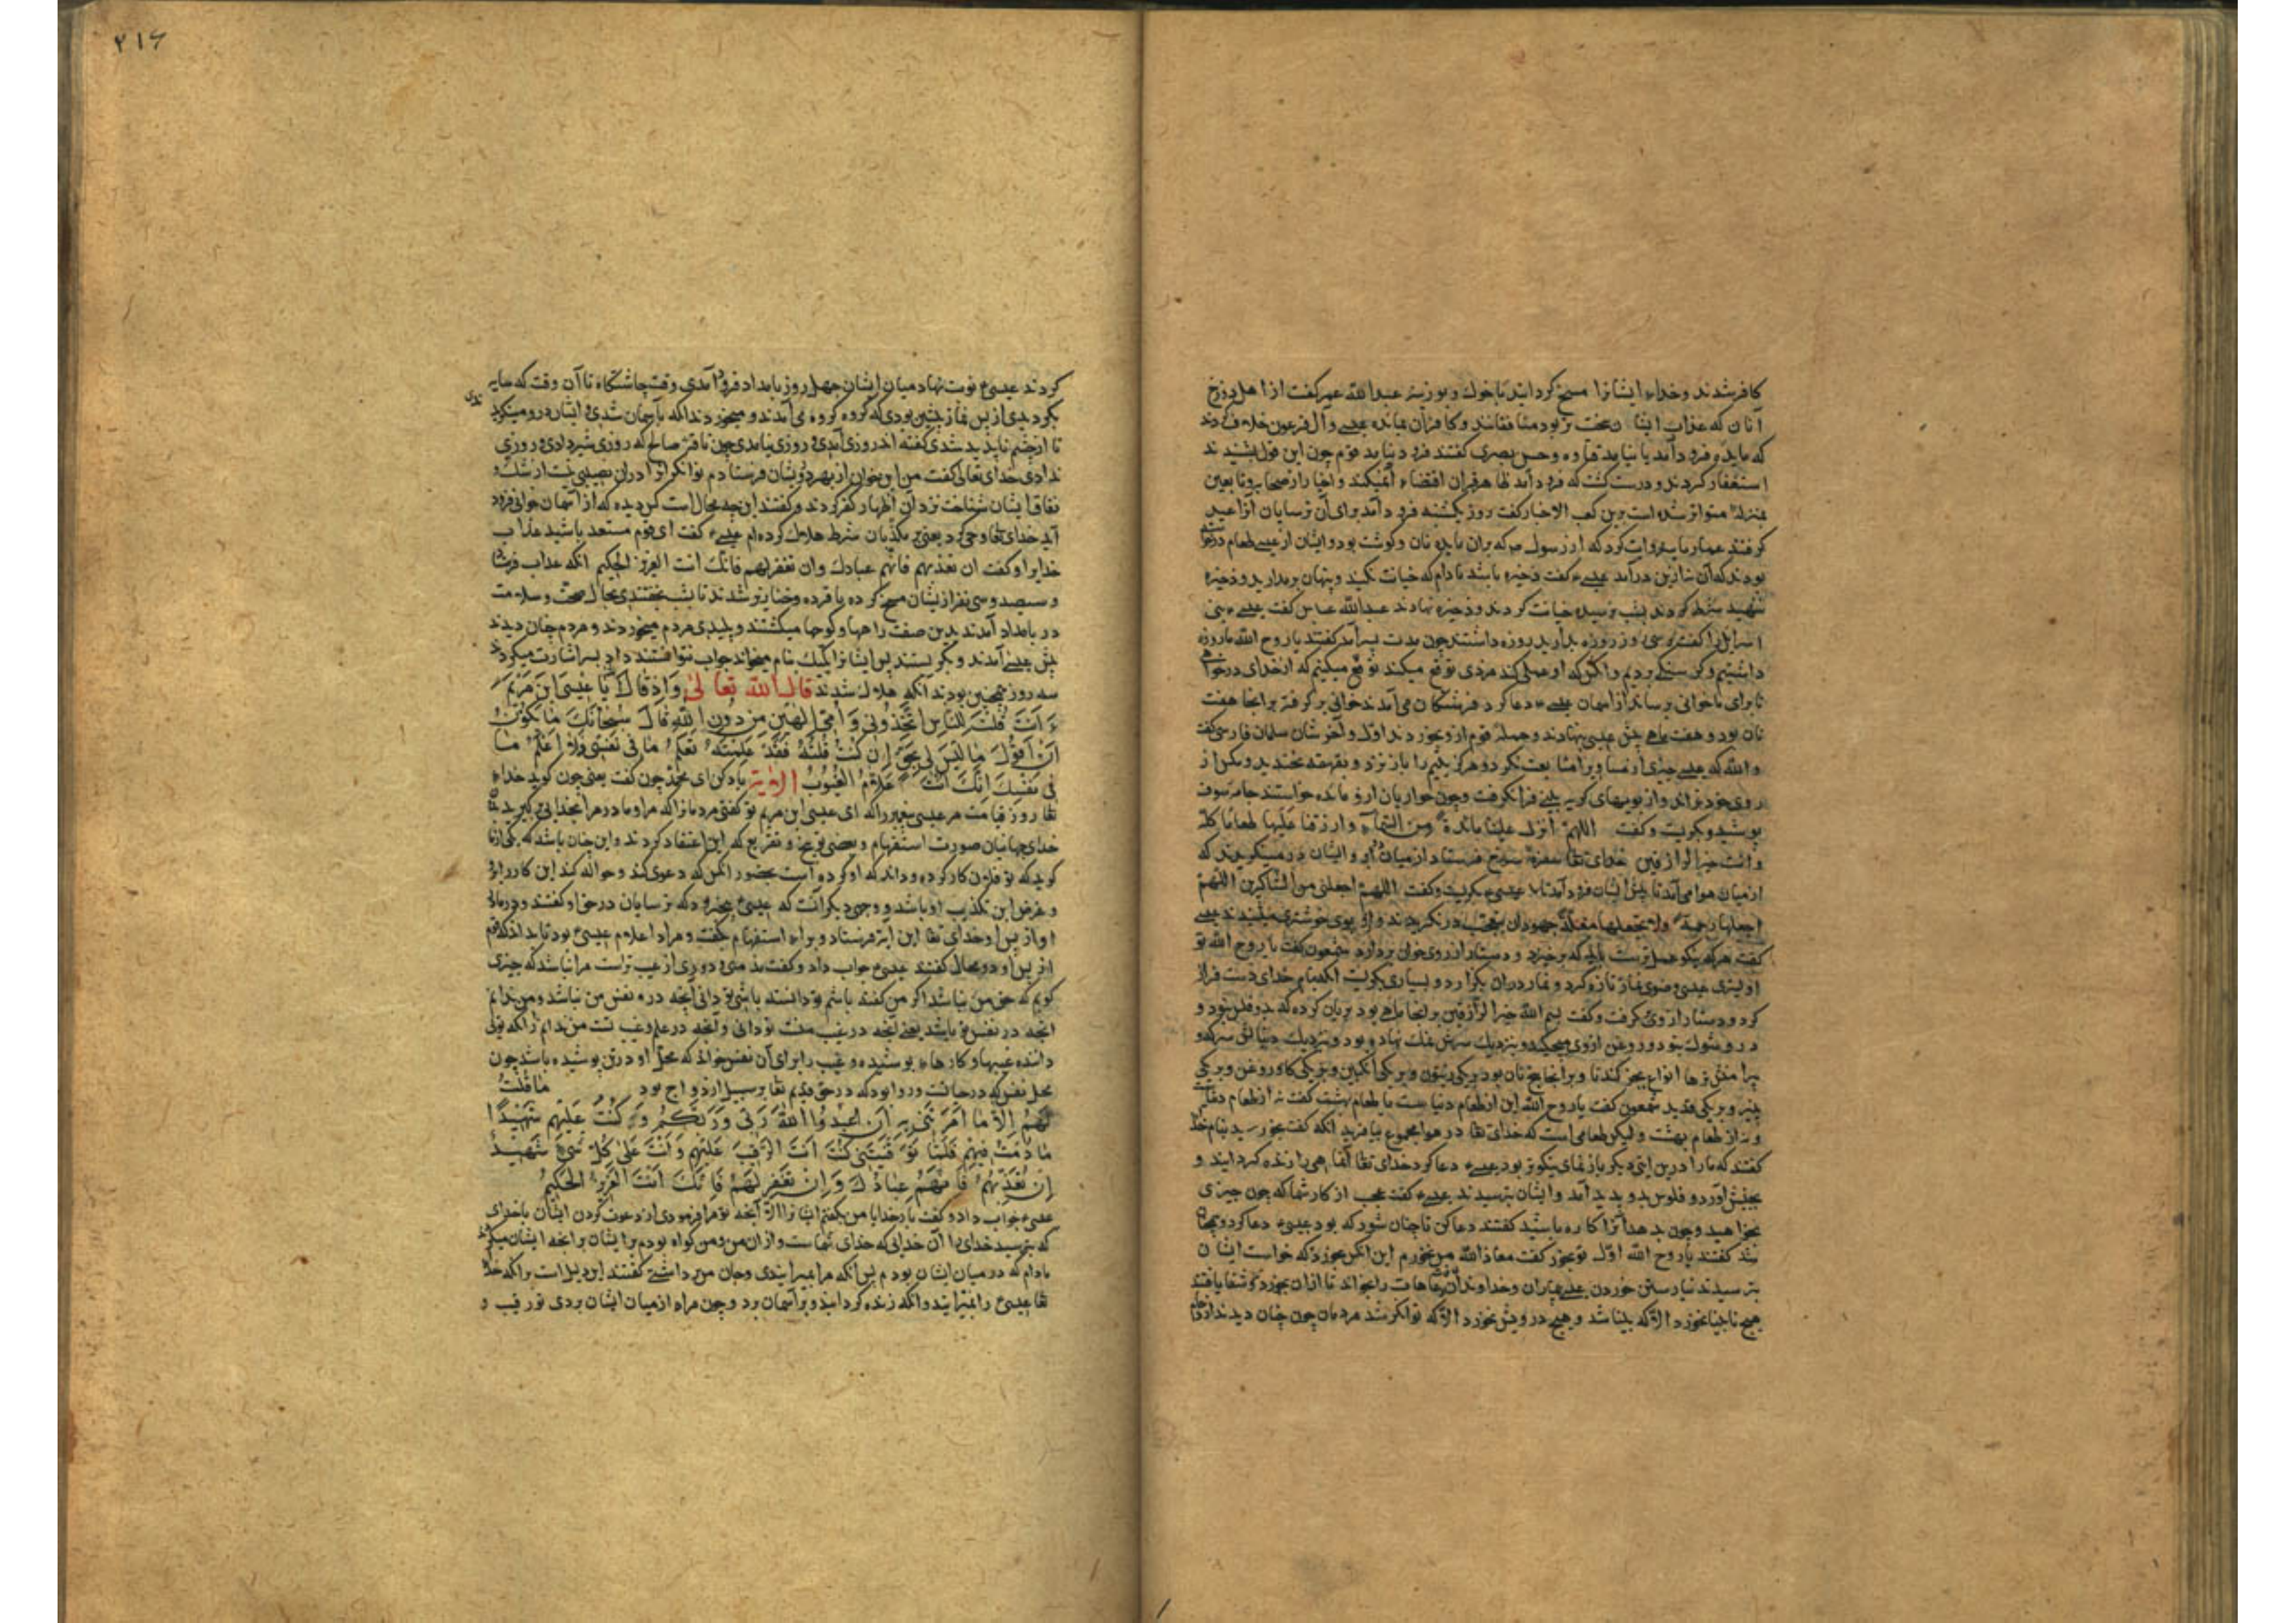 کافر شدند و خداء ایشانرا مسخ کردانید با خوک و بوزینه عبدالله عمر کفت از اهل دوزخ
آنان که عذاب ایشان سخت تر بود منافقانند و کافران مایده عیسی و آل فرعون خلاف کردند
که مایده فرود آمد یا نیامد قتاده و حسن بصری کفتند فرود نیامد قوم چون این قول بشنیدند
استغفار کردند و درست کشت که فرود آمد ظاهر قران اقتضاء آنمیکند و اخبار از صحابه و تابعین
بمنزله متواتر شده است برین کعب الاخبار کفت روز یکشنبه فرود آمد برای آن ترسایان آنرا عید
کرفتند عمار یاسر روایت کرد که از رسول ص که بران مایده نان و کوشت بود و ایشان از عیسی طعام در خواسته
بودند که آن شازین در آمد عیسی ع کفت ذخیره باشد مادام که خیانت نکنید و پنهان برمدارید و ذخیره
ننهید شرط کردند بشب نرسیده خیانت کردند و ذخیره نهادند عبدالله عباس کفت عیسی ع بنی
اسرایل را کفت که سی روز روزه بدارید روزه داشتند چون مدت بسر آمد کفتند یا روح الله ما روزه
داشتیم و کرسنکی بردیم و آنکس که او عملی کند مزدی توقع میکند توقع میکنیم که از خدای درخواهی
تا برای ما خوانی برساند از اسمان عیسی ع دعا کرد فرشتکان می آمدند خوانی بر کرفته بر انجا هفت
نان بود و هفت ماهی پیش عیسی بنهادند و جمله قوم ازو بخوردند اول و آخر شان سلمان فارسی کفت
والله که عیسی چیزی از مساوی را متابعت نکرد و هرکز یتیم را باز نزد و بقهقهه نخندید و مکس از
روی خود نراند و از بویهای کریه بینی فرا نکرفت و چون حواریان ازو مایده خواستند جامه صوف
پوشید و بکریست و کفت اللهم انزل علینا مائدة من السماء وارزقنا علیها طعاما کله
وانت خیر الرازقین خدای تعا سفرهٔ سرخ فرستاد از میان دو ابر و ایشان در مینکریدند که
از میان هوا می آمد تا پیش ایشان فرود آمد تا عیسی ع بکریست و کفت اللهم اجعلنی من الشاکرین اللهم
اجعلها رحمة ولا تجعلها مثلة جهودان بتعجب در نکریدند و از بوی خوشتری میشنیدند عیسی
کفت هرکه نیکو عمل ترست باید که برخیزد و دستار از روی خوان بردارد شمعون کفت یا روح الله تو
اولیتری عیسی وضوی نماز تازه کرد و نماز دران بکزارد و بسیاری بکریست آنکه بنام خدای دست فراز
کرد و دستار از وی بر کرفت و کفت بسم الله خیر الرازقین بر انجا ماهی بود بریان کرده که بدو فلس نبود و
درو شوک نبود و روغن ازوی میچکید و بنزدیک سرش نمک نهاده بود و بنزدیک دنبالش سرکه و
پیرامنش ترها انواع بجز کندنا و بر آنجا پنج نان بود بریکی زیتون و بریکی انکبین و بریکی کاو روغن و بریکی
پنیر و بریکی قدید شمعون کفت یا روح الله این از طعام دنیاست یا طعام بهشت کفت نه از طعام دنیاست
و نه از طعام بهشت ولیکن طعامی است که خدای تعا در هوا مجموع بیافرید آنکه کفت بخورید بنام خدای
کفتند که ما را درین ایتی دیکر باز نمای نیکوتر بود عیسی ع دعا کرد خدای تعا آن ماهی را زنده کردانید و
بجنبش آورد و فلوس بدو پدید آمد و ایشان بترسیدند عیسی ع کفت عجب از کار شما که چون چیزی
بخواهید و چون بدهد آنرا کاره باشید کفتند دعا کن تا چنان شود که بود عیسی ع دعا کرد و چنان
شد کفتند یا روح الله اول تو بخور کفت معاذالله من نخورم این انکس بخورد که خواست ایشان
بترسیدند نیارستن خوردن عیسی بیماران و خداوندان عاهات را بخواند تا ازان بخوردند و شفا یافتند
هیچ نابینا نخورد الا که بینا شد و هیچ درویش نخورد الا که توانکر شد مردمان چون چنان دیدند
۲۱۶
کردند عیسی ع نوبت نهاد میان ایشان چهل روز بامداد فرود آمدی وقت چاشتکاه تا آن وقت که سایه
بکردیدی از پس نماز چنین بودی که کروه کروه می آمدند و میخوردند آنکه بآسمان شدی و ایشان درو مینکرید
ندی
تا از چشم ناپدید شدی کفته اند روزی آمدی و روزی نیامدی چون ناقه صالح که روزی شیر دادی و روزی
ندادی خدای تعالی کفت من این خوان از بهر درویشان فرستادم توانکران را دران نصیبی نیست از شک و
نفاق ایشان شناخت نزد آن اظهار کفر کردند و کفتند این چه محال است کس دیده که از آسمان خوانی فرود
آید خدای تعا وحی کرد یعنی بر مکذبان شرط هلاک کرده ام عیسی ع کفت ای قوم مستعد باشید عذاب
خدایرا و کفت ان تعذبهم فانهم عبادک وان تغفر لهم فانک انت العزیز الحکیم آنکه عذاب فرستاد
و سیصد و سی نفر از یشان مسخ کرده با قرده و خنازیر شدند تا بشب بخفتندی بحال صحت و سلامت
در بامداد آمدند بدین صفت راهها و کوجها میکشتند و پلیدی مردم میخوردند و مردم چنان دیدند
پیش عیسی آمدند و بکریستند پس ایشانرا بیک بیک نام میخواند جواب نتوانستند داد بسر اشارت میکردند
سه روز همچنین بودند آنکه هلاک شدند قال الله تعالی واذ قال الله یا عیسی ابن مریم
ءانت قلت للناس اتخذونی وامی الهین من دون الله قال سبحانک ما یکون لی
ان اقول ما لیس لی بحق ان کنت قلته فقد علمته تعلم ما فی نفسی ولا اعلم ما
فی نفسک انک انت علام الغیوب الایة یاد کن ای محمد چون کفت یعنی چون کوید خدای
تعا روز قیامت مر عیسی پیغمبر را که ای عیسی ابن مریم تو کفتی مردمان را که مرا و مادر مرا بخدایی بکیرید
خدای جهانیان صورت استفهام و بمعنی توبیخ و تقریع که این اعتقاد کردند و این چنان باشد که یکی از ما
کوید که تو فلان کار کرده و داند که او کرده است بحضور آنکس که دعوی کند و حواله کند این کار را باو
و غرض این تکذیب او باشد و وجهی دیکر آنست که عیسی ع بیخبر بود که ترسایان در حق او کفتند و در مادر
او از پس او خدای تعا این ایة فرستاد و براه استفهام کفت و مراد اعلام عیسی ع بود تا بداند که قوم
از پس او دو محال کفتند عیسی ع جواب داد و کفت منزهی و دوری از عیب تراست مرا نباشد که چیزی
کویم که حق من نباشد اکر من کفته باشم تو دانسته باشی تو دانی آنچه در نفس من نباشد و من ندانم
آنچه در نفس تو باشد یعنی آنچه در غیب منست تو دانی و آنچه در علم و غیب تست من ندانم زانکه تویی
داننده غیبها و کارهاء پوشیده و غیب را برای آن نفس خواند که محل او درتن پوشیده باشد چون
محل نفس که در جانست و روا نبود که در حق قدیم تعا بر سبیل ازدواج بود ما قلت
لهم الا ما امرتنی به ان اعبدوا الله ربی وربکم وکنت علیهم شهیدا
ما دمت فیهم فلما توفیتنی کنت انت الرقیب علیهم وانت علی کل شیء شهید
ان تعذبهم فانهم عبادک وان تغفر لهم فانک انت العزیز الحکیم
عیسی ع جواب داد و کفت بار خدایا من نکفتم ایشانرا الا آنچه تو مرا فرمودی از دعوت کردن ایشان با خدای
که بترسید خدای را آن خدایی که خدای شماست و ازان من و من کواه بودم بر ایشان بر آنچه ایشان میکردند
مادام که در میان ایشان بودم پس آنکه مرا بمیرانیدی و جان من برداشتی کفتند این دلیل است بر آنکه خدای
تعا عیسی ع را بمیرانید و آنکه زنده کردانید و بر آسمان برد و چون مراه از میان ایشان بردی تو رقیب و